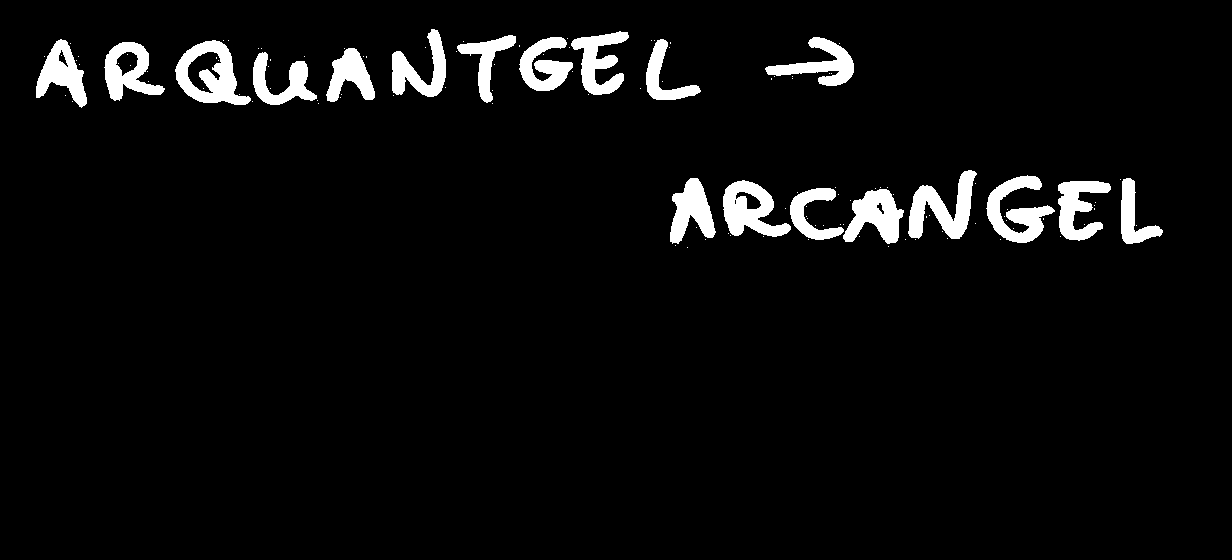 ARQUANTGEL →
ARCANGEL